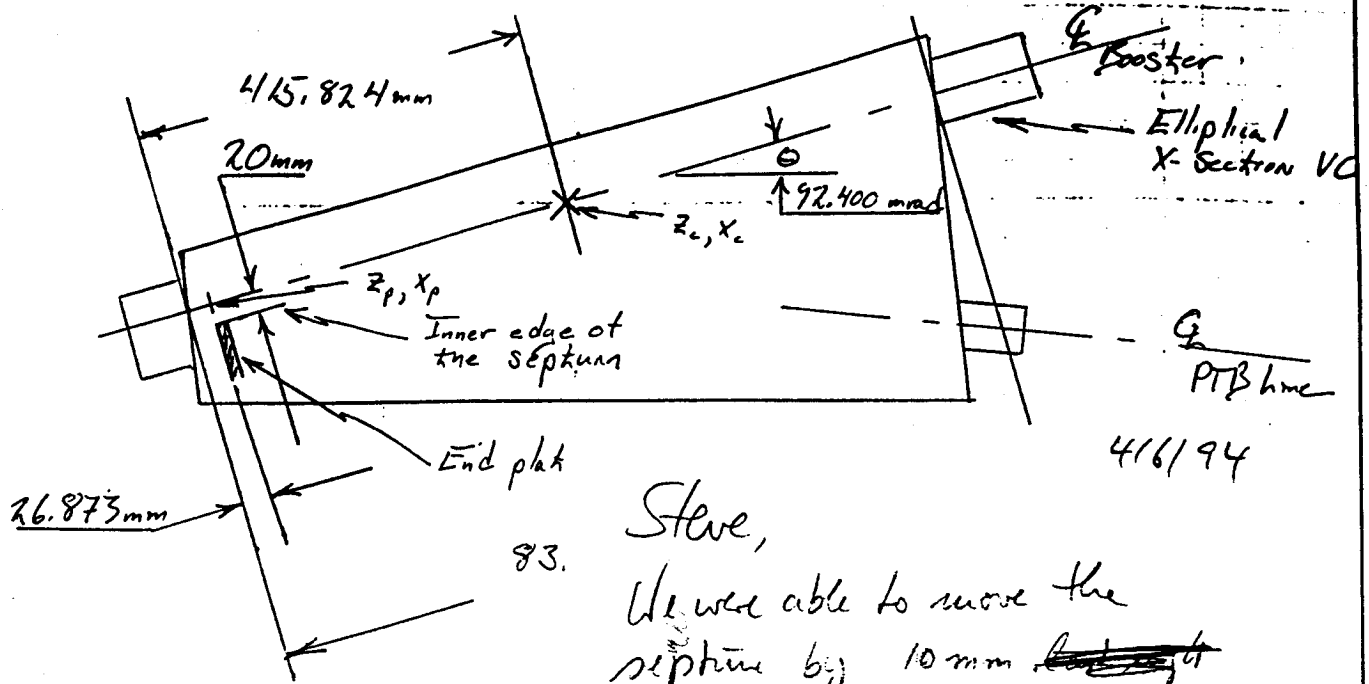 ℄ Booster
415.824mm
Elliptical
X-Section VC
20mm
θ
92.400 mrad
Zc, Xc
Zp, Xp
Inner edge of
the septum
℄
PTB line
End plate
4/6/94
26.873mm
83.
Steve,
We were able to move the
septum by 10 mm